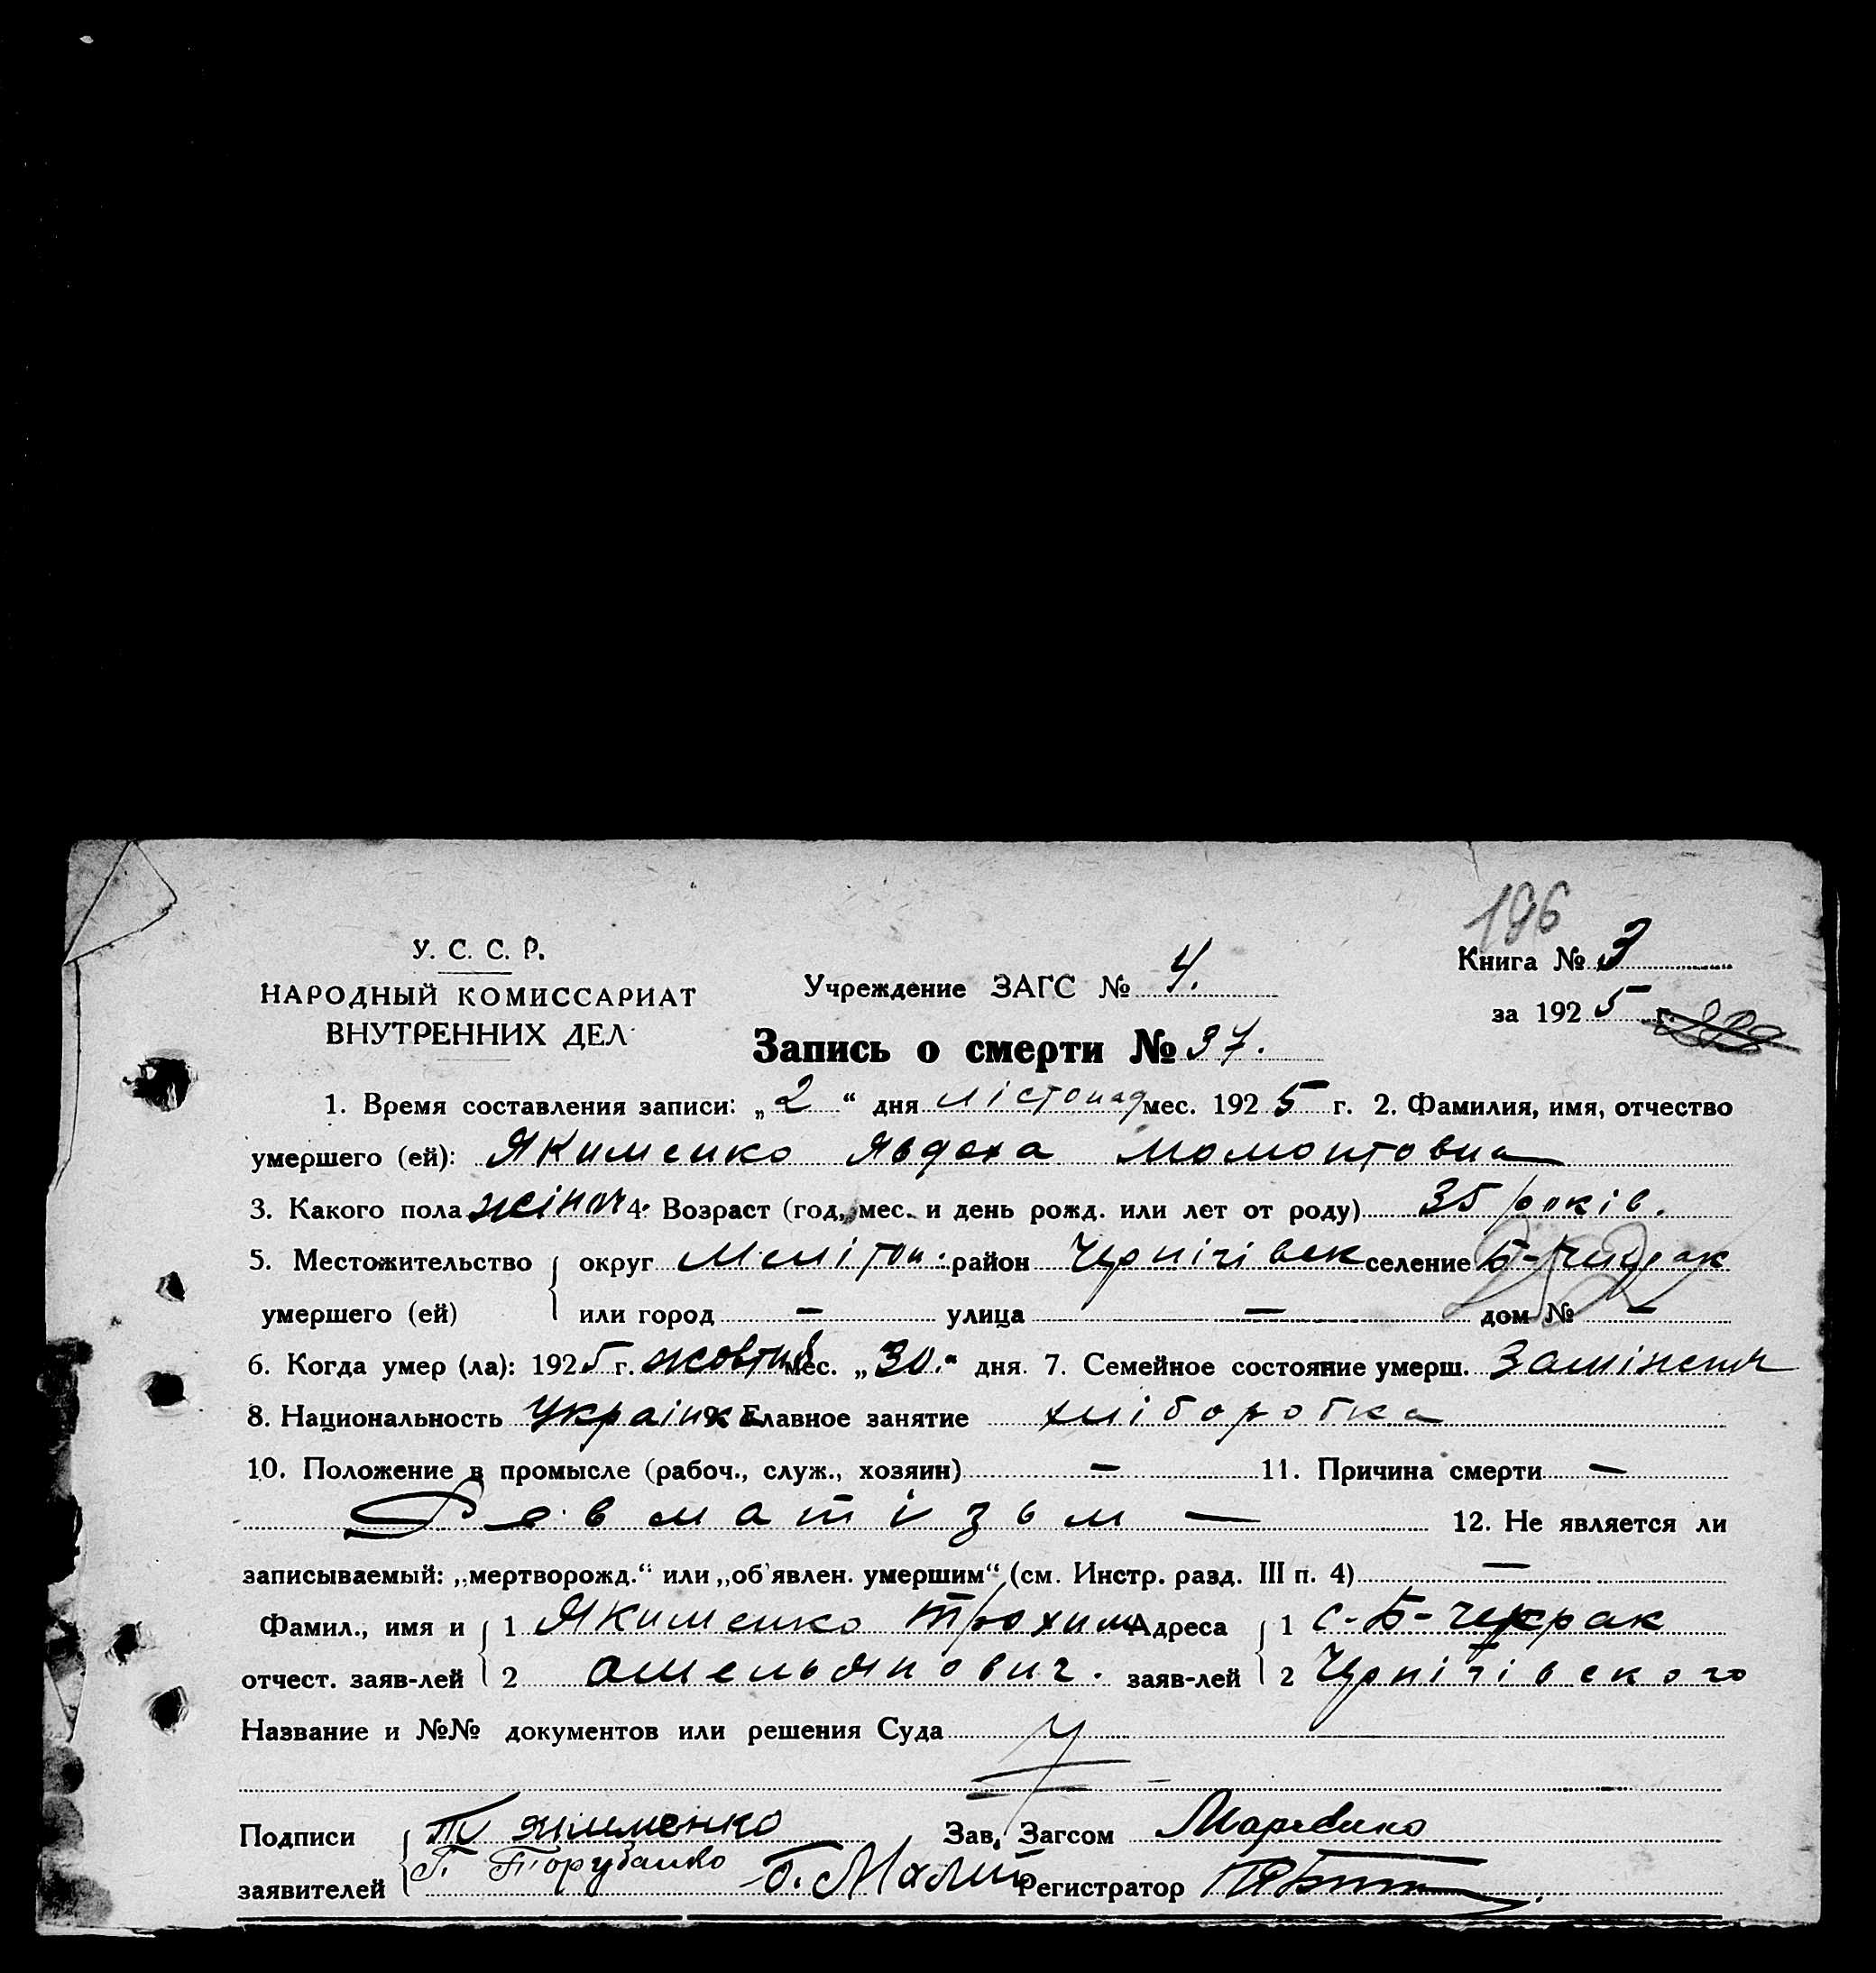 196
У. С. С. Р.
НАРОДНЫЙ КОМИССАРИАТ
ВНУТРЕННИХ ДЕЛ
Учреждение ЗАГС № 4.
Книга № 3
за 1925 г.
Запись о смерти № 37.
1. Время составления записи: „2“ дня лістопад мес. 1925 г. 2. Фамилия, имя, отчество
умершего (ей): Якименко Явдоха Момонтовна
3. Какого пола жіноч 4. Возраст (год, мес. и день рожд. или лет от роду) 35 років.
5. Местожительство округ Мелітоп: район Чернігівск селение Б-
умершего (ей) или город — улица — дом № —
6. Когда умер (ла): 1925 г. жовтня мес. „30.“ дня. 7. Семейное состояние умерш.
8. Национальность Українка 9. Главное занятие хліборобка
10. Положение в промысле (рабоч., служ., хозяин) — 11. Причина смерти —
Ревматізьм — 12. Не является ли
записываемый: „мертворожд.“ или „об'явлен. умершим“ (см. Инстр. разд. III п. 4) —
Фамил., имя и 1 Якименко Трохим Адреса 1 с-Б-
отчест. заяв-лей 2 Омельянович. заяв-лей 2 Чернігівского
Название и №№ документов или решения Суда
Подписи Т Якименко Зав. Загсом
заявителей Б. Малій Регистратор